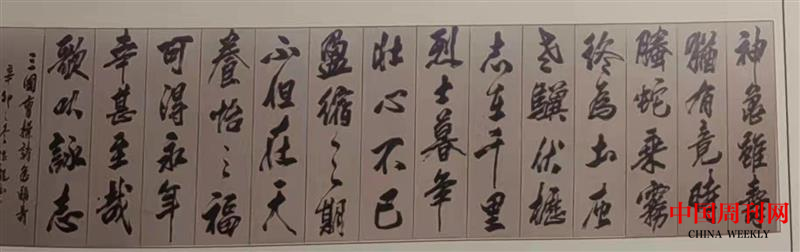 神龜雖壽
猶有竟時
騰蛇乘霧
終為土灰
老驥伏櫪
志在千里
烈士暮年
壯心不已
盈縮之期
不但在天
養怡之福
可得永年
幸甚至哉
歌以詠志
三國曹操詩龜雖壽
辛卯之冬
中国周刊网
CHINA WEEKLY